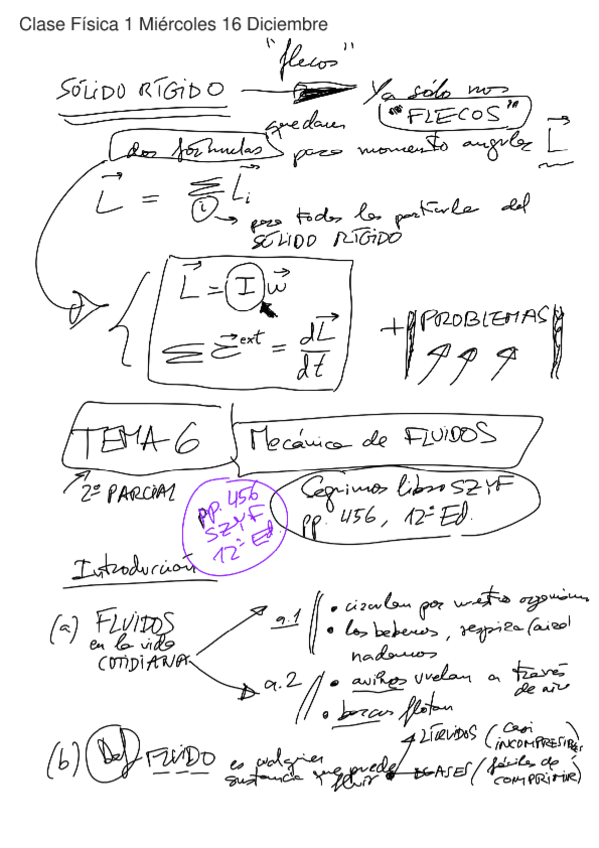 Clase Física 1 Miércoles 16 Diciembre
"flecos"
SÓLIDO RÍGIDO → Ya sólo nos
quedan "FLECOS"
dos fórmulas para momento angular L
L = Σ Li
i → para todas las partículas del
SÓLIDO RÍGIDO
L = I w
Σ τ ext = dL/dt
+ PROBLEMAS
TEMA 6 Mecánica de FLUIDOS
2º PARCIAL
pp. 456
SZYF
12ª Ed.
Seguimos libro SZYF
pp. 456, 12ª Ed.
Introducción
(a) FLUIDOS
en la vida
COTIDIANA
a.1 • circulan por nuestro organismo
• los bebemos, respira (aire)
nadamos
a.2 • aviones vuelan a través
de aire
• barcos flotan
(b) Def FLUIDO es cualquier
sustancia que puede
fluir
LÍQUIDOS (casi
INCOMPRESIBLES)
GASES (fáciles de
COMPRIMIR)